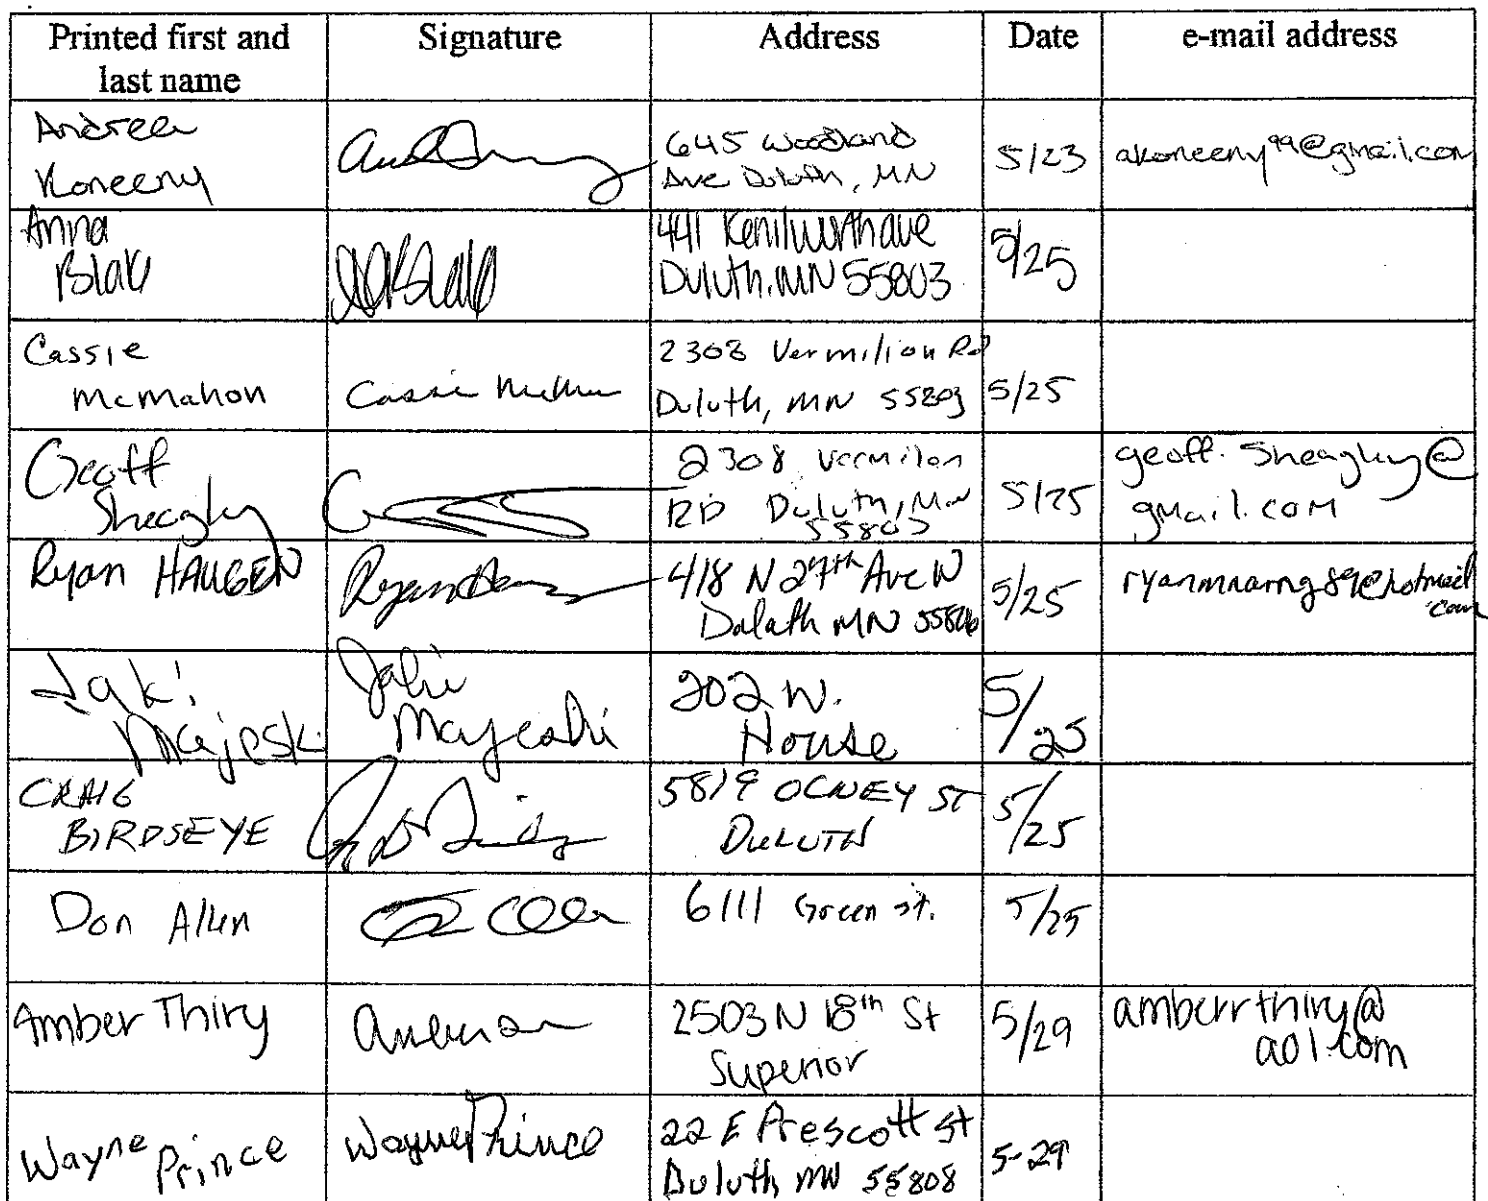 Printed first and last name | Signature | Address | Date | e-mail address
Andrea Koneeny | 645 Woodland Ave Duluth, MN | 5/23 | akoneeny99@gmail.com
Anna Blak | 441 Kenilwurth ave Duluth, MN 55803 | 5/25
Cassie McMahon | Cassie | 2308 Vermilion Rd Duluth, MN 55803 | 5/25
Geoff Sheagley | 2308 Vermilon RD Duluth, MN 55803 | 5/25 | geoff.Sheagley@gmail.com
Ryan HAUGEN | Ryan | 418 N 27th Ave W Duluth MN 55806 | 5/25 | ryanmnarng89@hotmail.com
Jaki Majeski | Jaki Majeski | 202 W. House | 5/25
CRAIG BIRDSEYE | 5819 OCNEY ST DULUTH | 5/25
Don Allen | 6111 Green st. | 5/25
Amber Thiry | 2503 N 18th St Superior | 5/29 | amberrthiry@aol.com
Wayne Prince | Wayne Prince | 22 E Prescott st Duluth, MN 55808 | 5-29